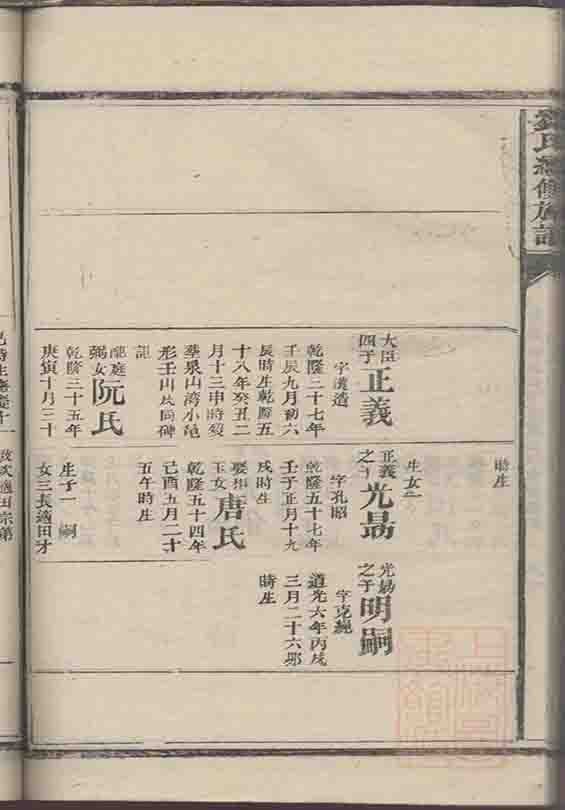 氏續修族譜
時生
大臣四子正義
字漢遺
乾隆二十七年
壬辰九月初六
辰時生乾隆五
十八年癸丑二
月十三申時歿
葬泉山湾小
形壬山
龍庭
女阮氏
乾隆三十五年
庚寅十月三十
生女一
正義之子光昜
字孔昭
乾隆五十七年
壬子正月十九
戌時生
娶
玉女唐氏
乾隆五十四年
己酉五月二十
五午時生
生子一 嗣
女三長適田才
光昜之子明嗣
字克繩
道光六年丙戌
三月二十六
時生
適田宗弟